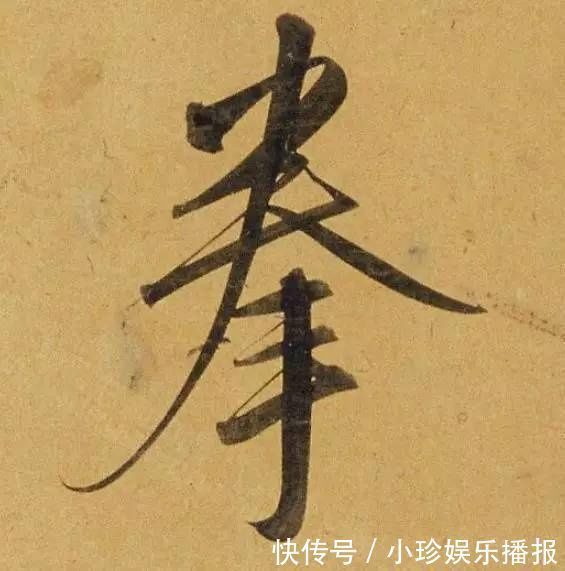 拳
快传号/小珍娱乐播报